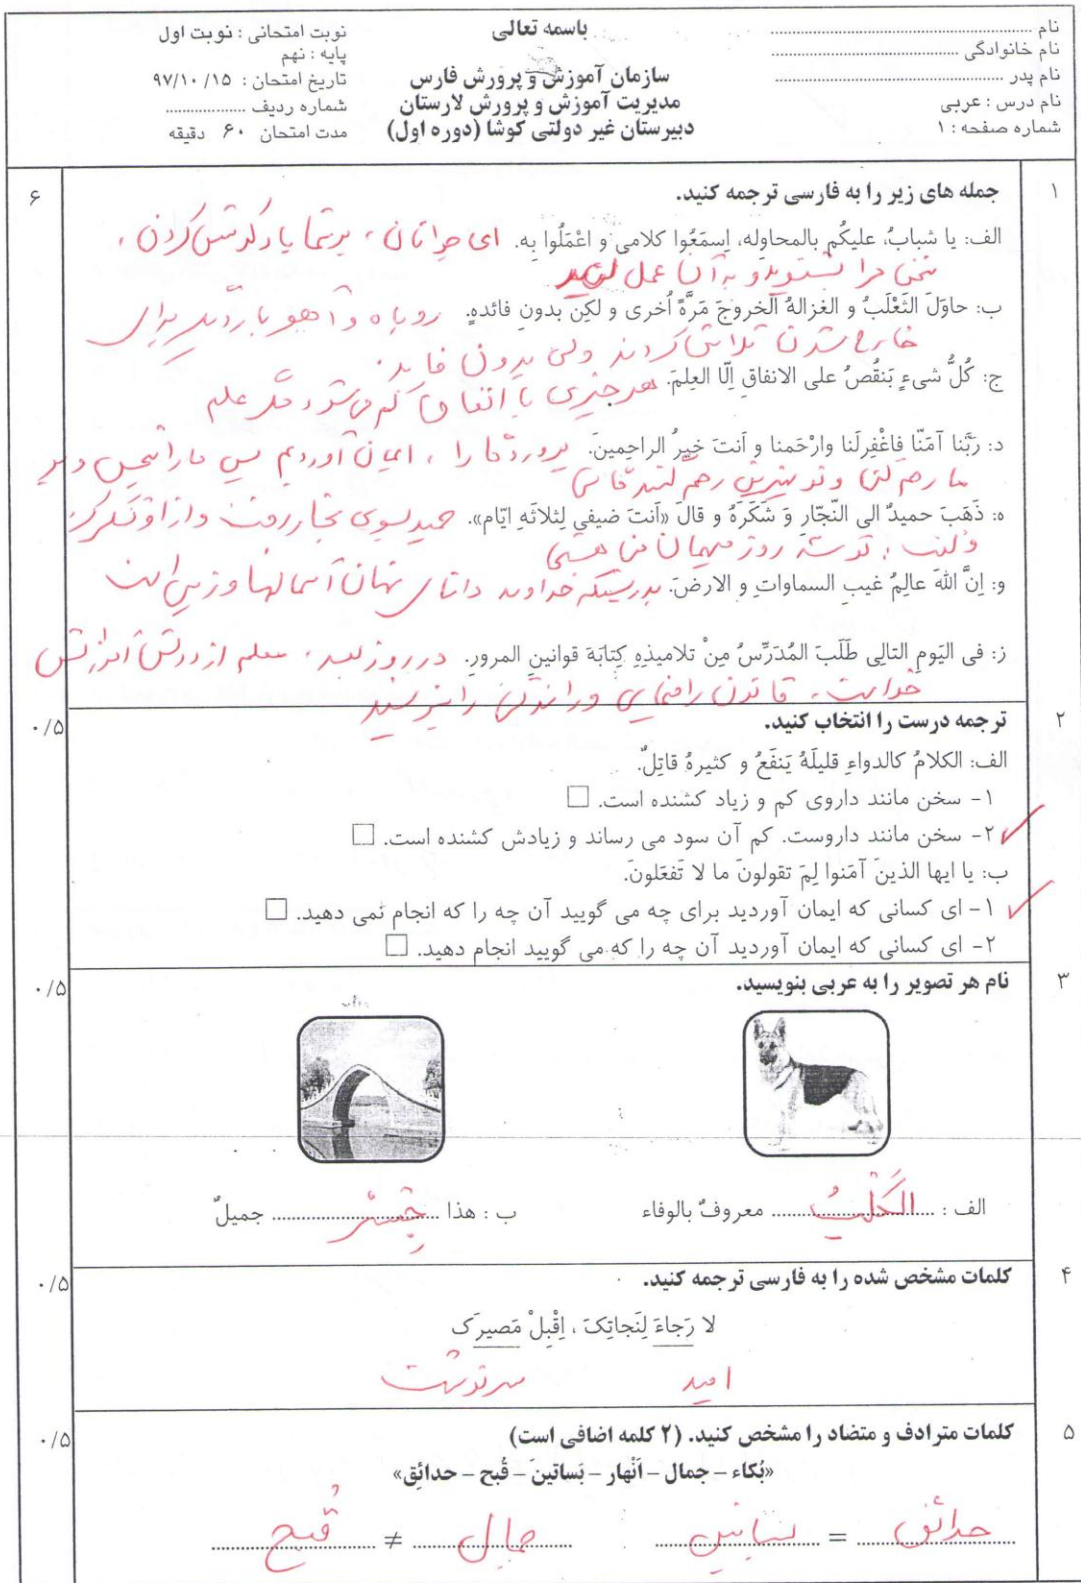 باسمه تعالی
نام ........................................
نام خانوادگی ........................................
نام پدر ........................................
نام درس : عربی
شماره صفحه : ۱
سازمان آموزش و پرورش فارس
مدیریت آموزش و پرورش لارستان
دبیرستان غیر دولتی کوشا (دوره اول)
نوبت امتحانی : نوبت اول
پایه : نهم
تاریخ امتحان : ۹۷/۱۰/۱۵
شماره ردیف ..................
مدت امتحان ۶۰ دقیقه
۱ جمله های زیر را به فارسی ترجمه کنید. ۶
الف: یا شبابُ، علیکُم بالمحاوله، اِسمَعُوا کلامی و اعْمَلُوا بِه. ای جوانان ، بر شما یاد
سخن مرا بشنوید و به آن عمل کنید
ب: حاوَلَ الثَعْلَبُ و الغزالهُ الخروجَ مَرَّةً اُخری و لکِن بدونِ فائدهٍ. روباه و آهو بار دیگر برای
خارج شدن تلاش کردند ولی بدون فایده.
ج: کُلُّ شیءٍ یَنقُصُ علی الانفاقِ اِلّا العِلمَ. هر چیزی با انفاق کم می شود مگر علم
د: رَبَّنا آمَنّا فاغْفِرلَنا وارْحَمنا و اَنتَ خیرُ الراحِمینَ. پروردگارا ، ایمان آوردیم پس ما را ببخش و بر
ما رحم کن و تو بهترین رحم کنندگانی
ه: ذَهَبَ حمیدٌ الی النّجّارِ وَ شَکَرَهُ و قالَ «اَنتَ ضیفی لِثلاثَهِ ایّام». حمید بسوی نجار رفت و از او تشکر کرد
و گفت ، تو سه روز میهمان من هستی
و: اِنَّ اللهَ عالِمُ غیبِ السماواتِ و الارضَ. بدرستیکه خداوند دانای نهان آسمانها و زمین است
ز: فی الیَومِ التالِی طَلَبَ المُدَرِّسُ مِنْ تلامیذِهِ کِتابَةَ قوانینِ المرورِ. در روز بعد ، معلم از دانش آموزانش
خواست ، قانون راهنمایی و رانندگی را بنویسند
۲ ترجمه درست را انتخاب کنید. ۰/۵
الف: الکلامُ کالدواءِ قلیلَهُ یَنفَعُ و کثیرهُ قاتِلٌ.
۱- سخن مانند داروی کم و زیاد کشنده است. □
✓ ۲- سخن مانند داروست. کم آن سود می رساند و زیادش کشنده است. □
ب: یا ایها الذینَ آمَنوا لِمَ تقولونَ ما لا تَفعَلونَ.
✓ ۱- ای کسانی که ایمان آوردید برای چه می گویید آن چه را که انجام نمی دهید. □
۲- ای کسانی که ایمان آوردید آن چه را که می گویید انجام دهید. □
۳ نام هر تصویر را به عربی بنویسید. ۰/۵
الف : الکَلْبُ معروفٌ بالوفاء
ب : هذا جِسْر جمیلٌ
۴ کلمات مشخص شده را به فارسی ترجمه کنید. ۰/۵
لا رَجاءَ لِنَجاتِکَ ، اِقْبِلْ مَصیرَک
امید سرنوشت
۵ کلمات مترادف و متضاد را مشخص کنید. (۲ کلمه اضافی است) ۰/۵
«بُکاء – جمال – اَنْهار – بَساتینَ – قُبح – حدائِق»
حدائق = بساتین جمال ≠ قُبح